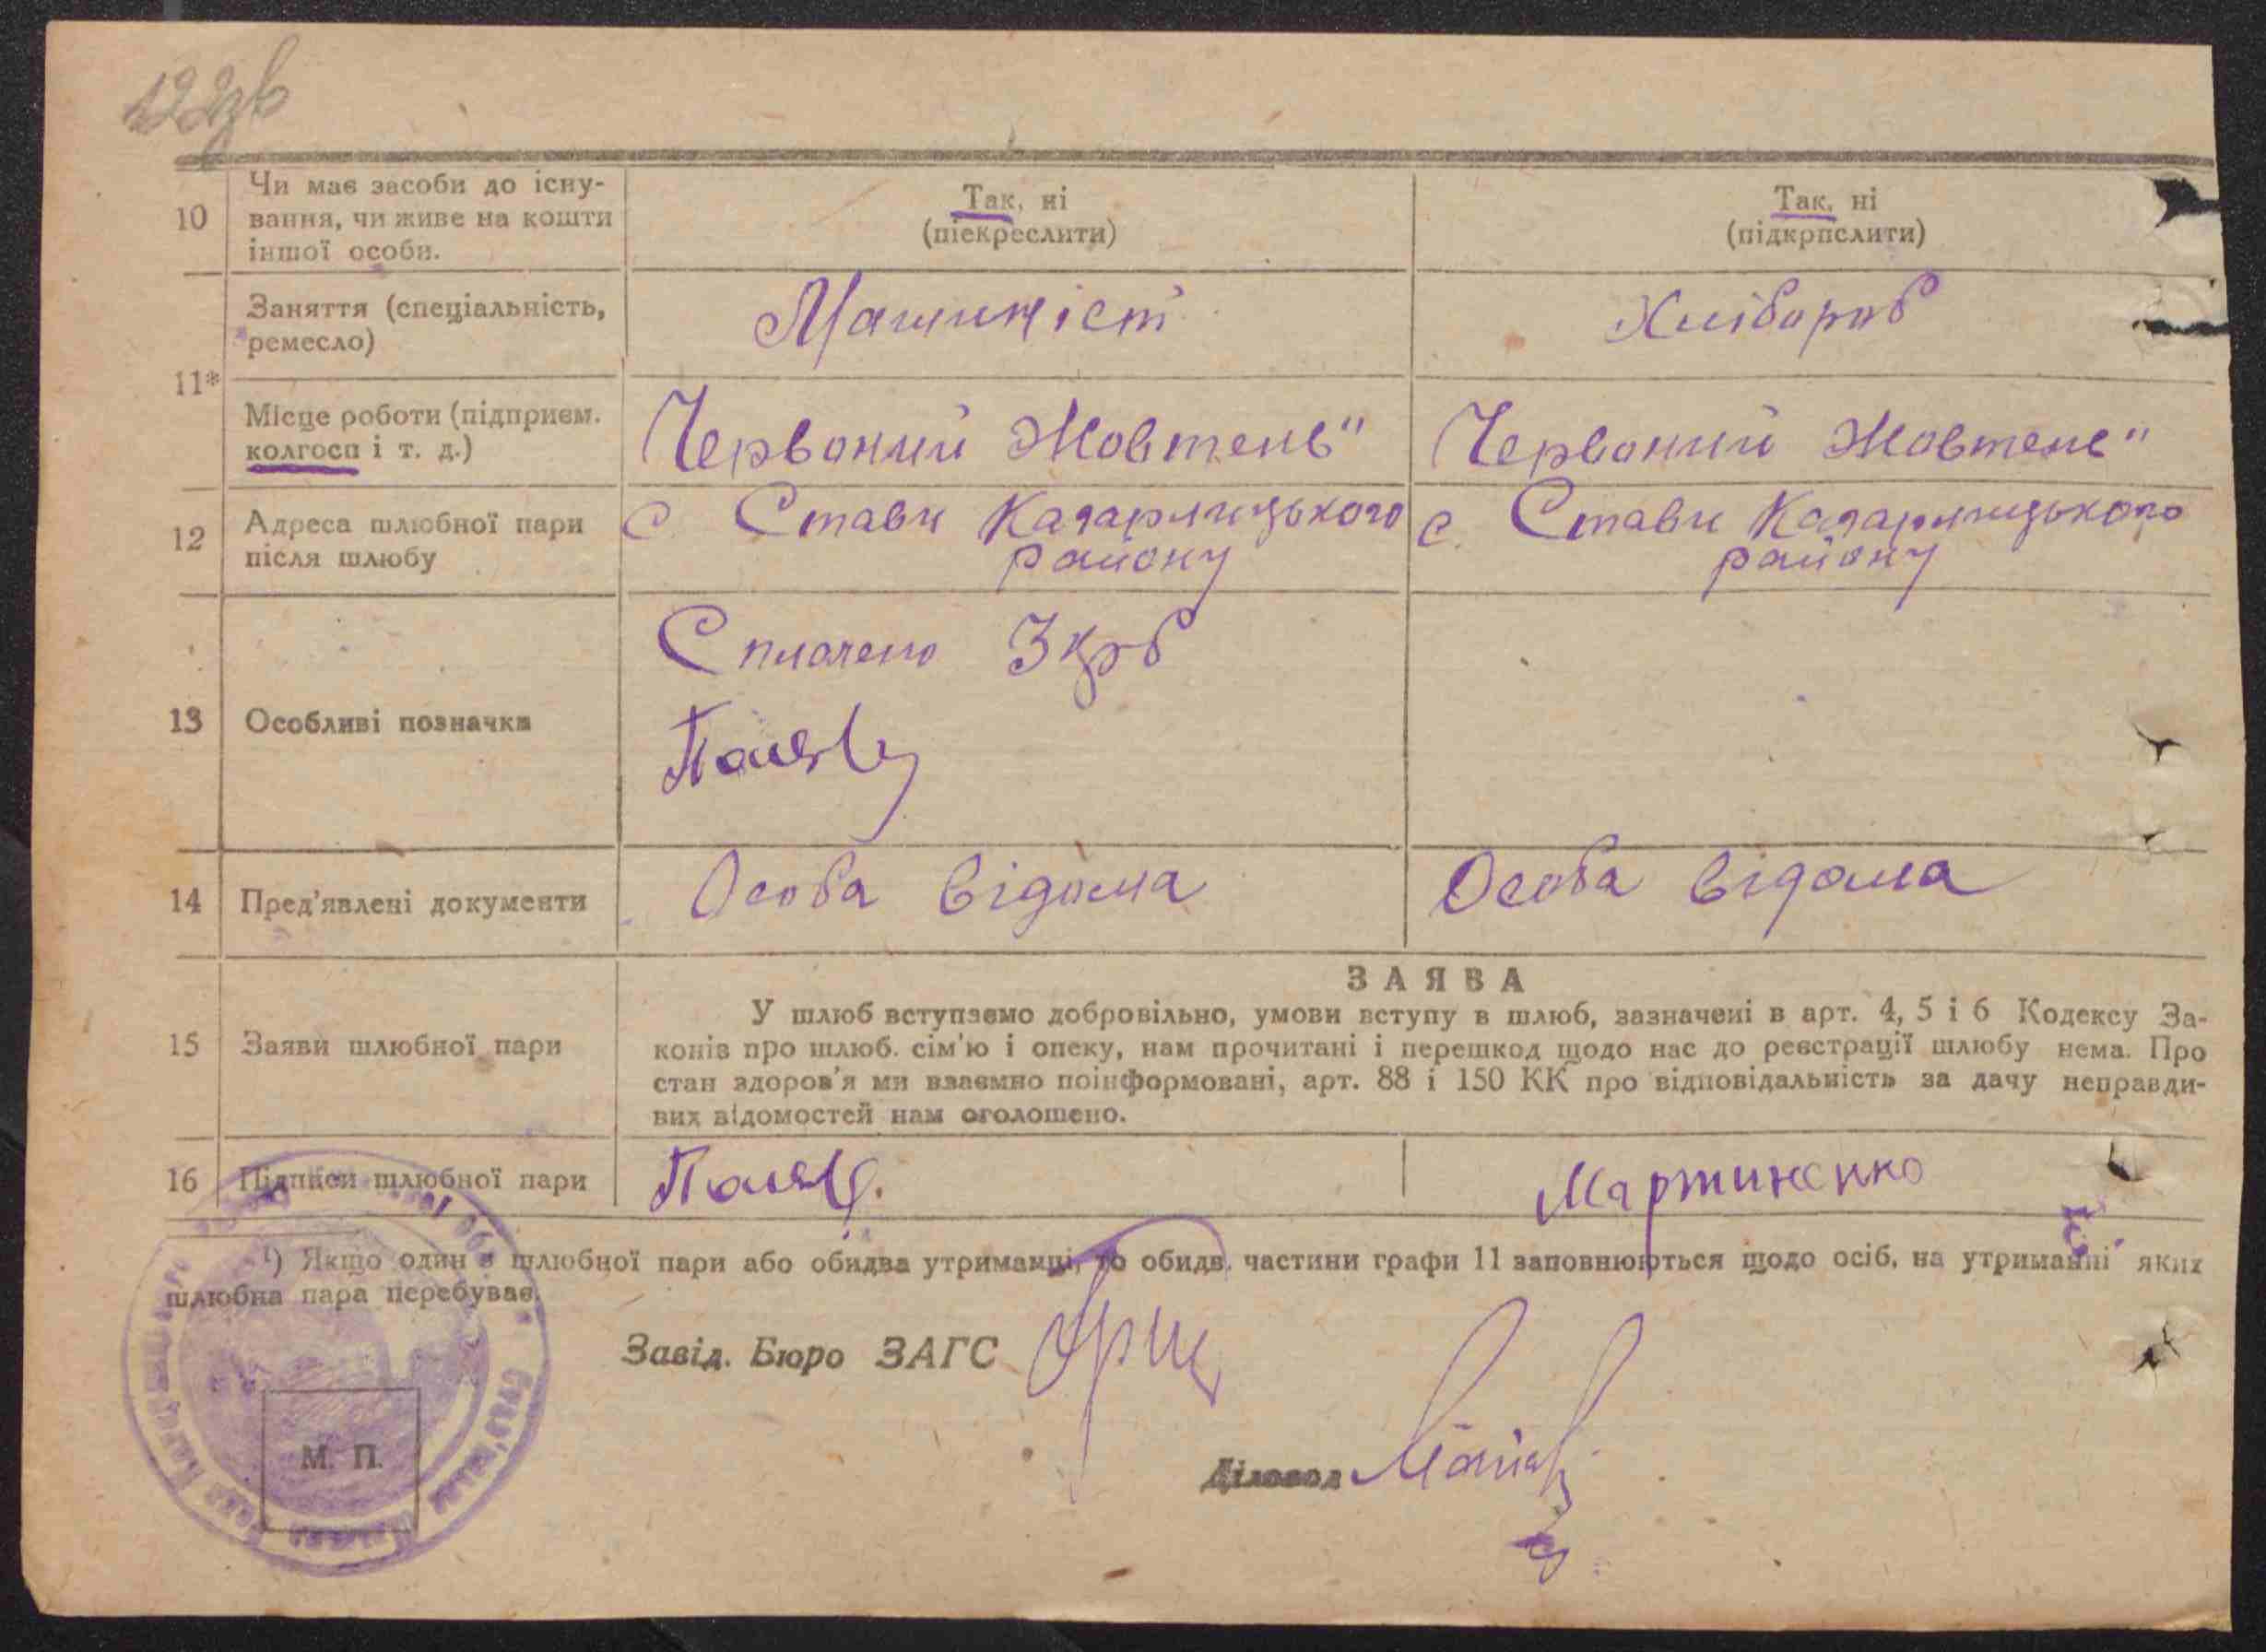 122зв
10 Чи має засоби до існу-
вання, чи живе на кошти
іншої особи.
Так, ні
(піекреслити)
Так, ні
(підкрпслити)
11*
Заняття (спеціальність,
ремесло)
Машиніст
Хлібороб
Місце роботи (підприєм.
колгосп і т. д.)
Червоний Жовтень"
Червоний Жовтень"
12 Адреса шлюбної пари
після шлюбу
с. Стави Кагарлицького
району
с. Стави Кагарлицького
району
13 Особливі позначки
Сплачено 3 крб
14 Пред'явлені документи
Особа відома
Особа відома
15 Заяви шлюбної пари
ЗАЯВА
У шлюб вступаємо добровільно, умови вступу в шлюб, зазначені в арт. 4, 5 і 6 Кодексу За-
конів про шлюб. сім'ю і опеку, нам прочитані і перешкод щодо нас до реєстрації шлюбу нема. Про
стан здоров'я ми взаємно поінформовані, арт. 88 і 150 КК про відповідальність за дачу неправди-
вих відомостей нам оголошено.
16 Підписи шлюбної пари
Мартиненко
¹) Якщо один з шлюбної пари або обидва утриманці, то обидв. частини графи 11 заповнюються щодо осіб, на утриманні яких
шлюбна пара перебуває.
Завід. Бюро ЗАГС
Діловод
М. П.